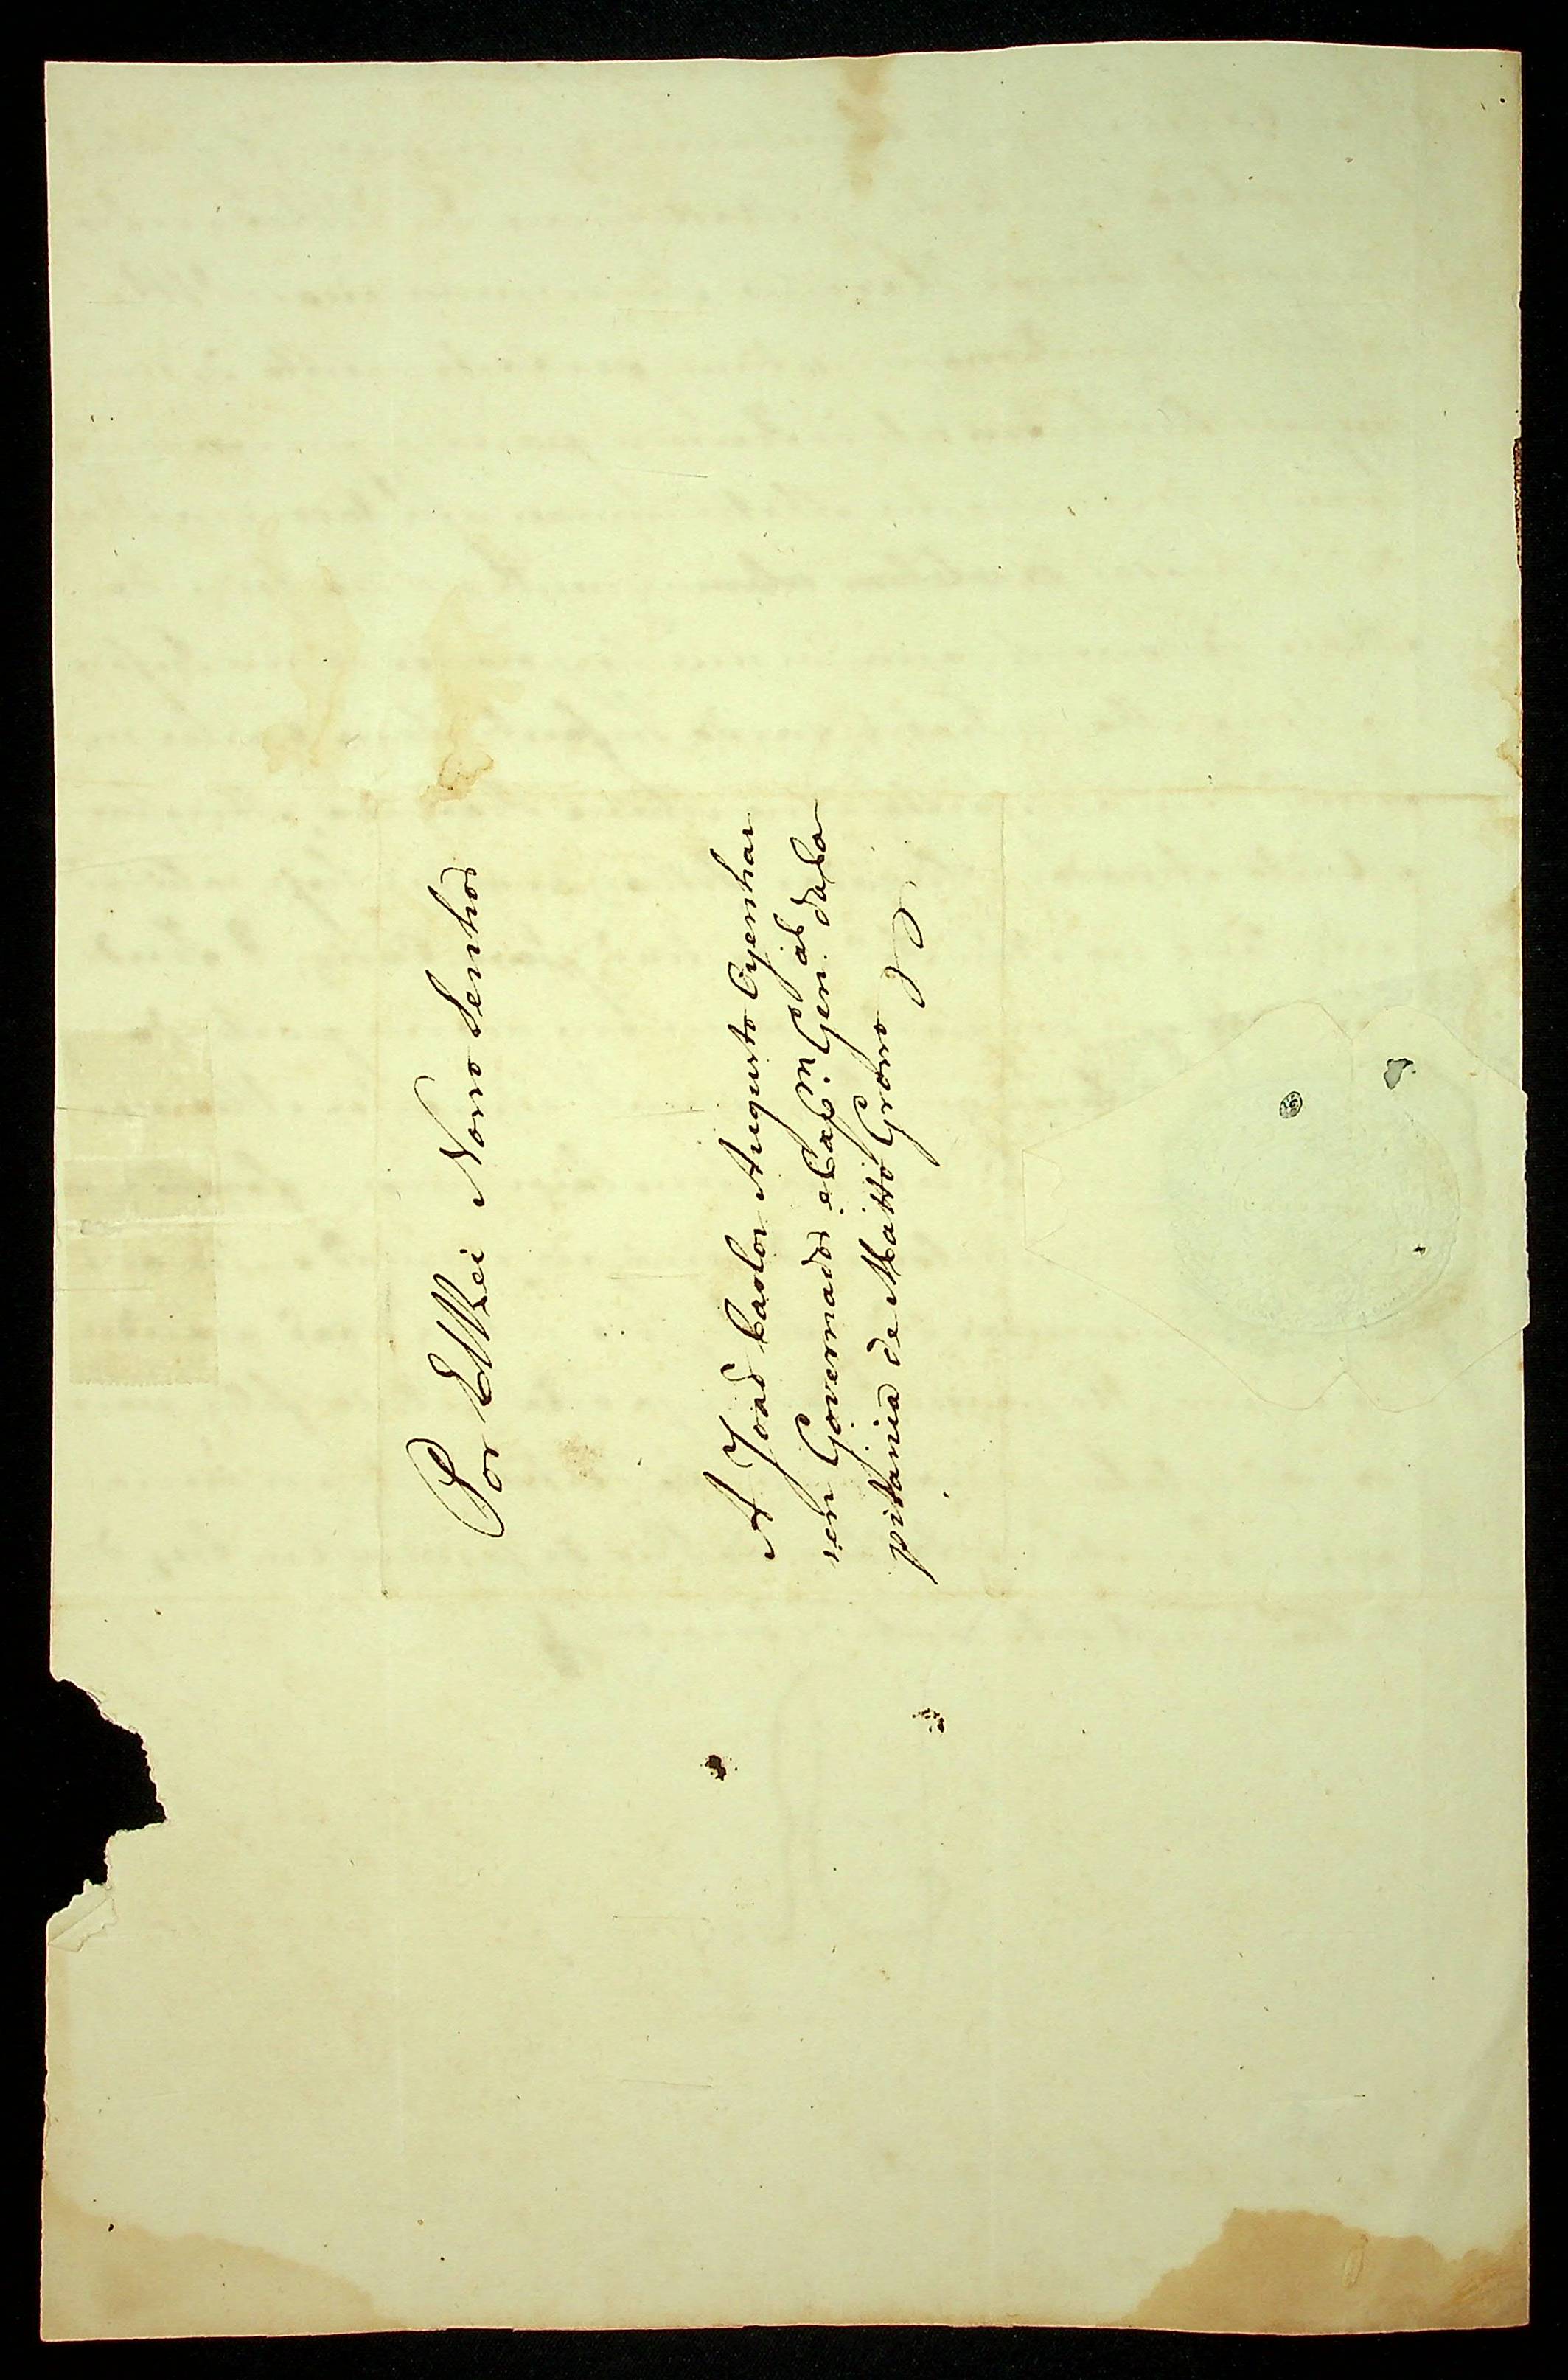 Por ElRei Nosso Senhor
A João Carlos Augusto Oyenhau
sen Governador e Cap.m Gen.al da Ca
pitania de Matto Grosso